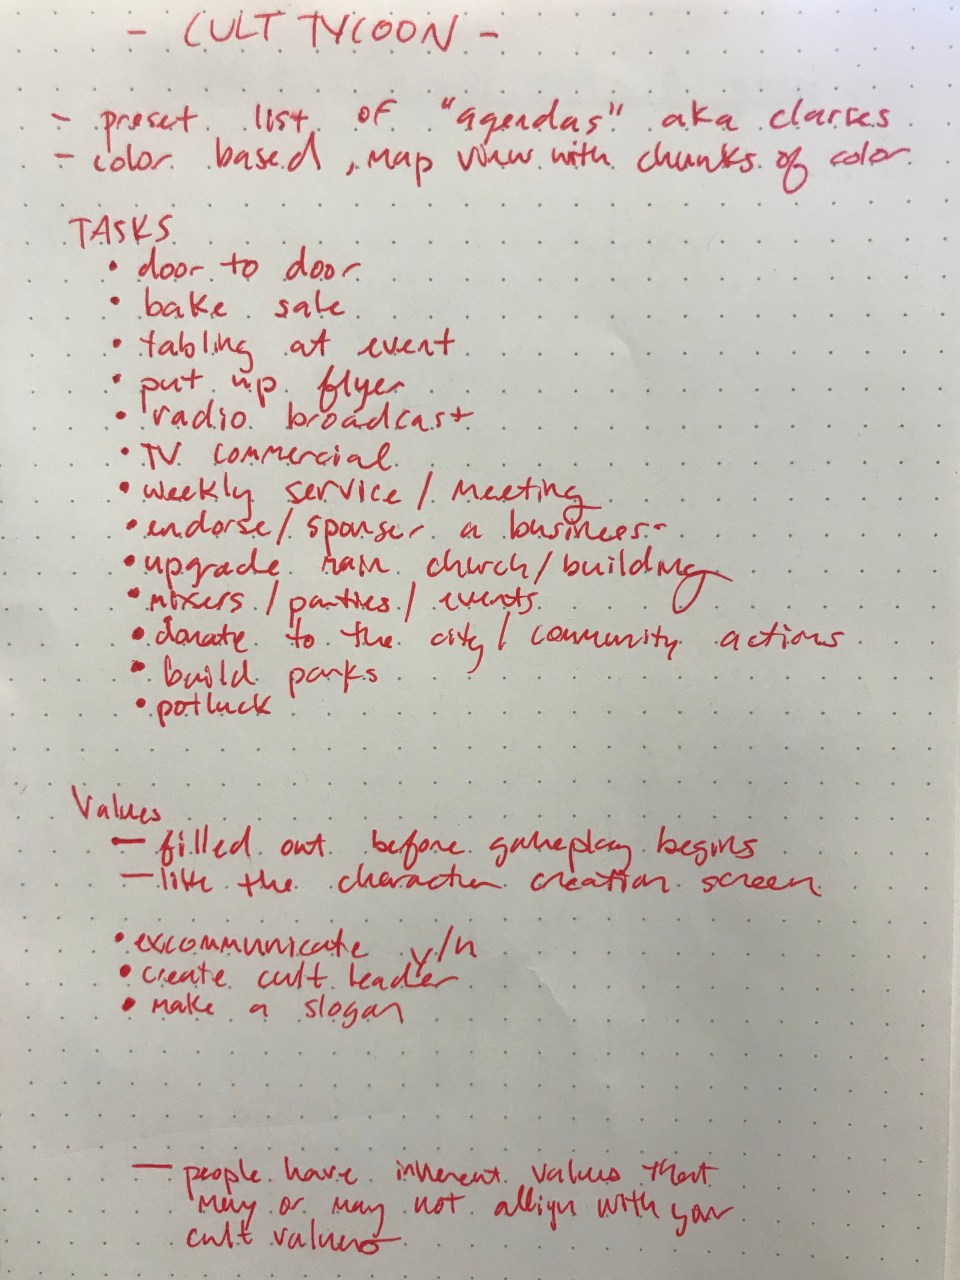 - CULT TYCOON -
- preset list of "agendas" aka classes
- color based, map view with chunks of color
TASKS
• door to door
• bake sale
• tabling at event
• put up flyer
• radio broadcast
• TV commercial
• weekly service / meeting
• endorse / sponser a business
• upgrade main church / building
• mixers / parties / events
• donate to the city / community actions
• build parks
• potluck
Values
- filled out before gameplay begins
- like the character creation screen
• excommunicate y/n
• create cult leader
• make a slogan
- people have inherent values that
may or may not allign with your
cult values